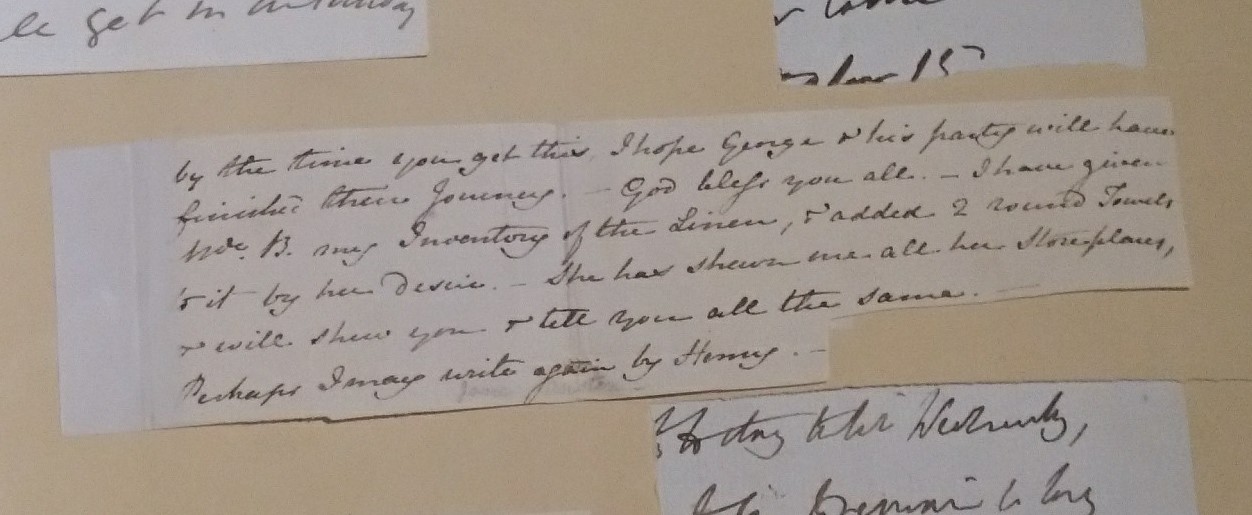 get in
15
by the time you get this, I hope George & his party will have
finish'd their Journey. — God bless you all. — I have given
Mde. B. my Inventory of the Linen, & added 2 round Towels
to it by her desire. — She has shewn me all her Storeplaces,
& will shew you & tell you all the same. —
Perhaps I may write again by Henry. —
Jane Austen
Wednesday,